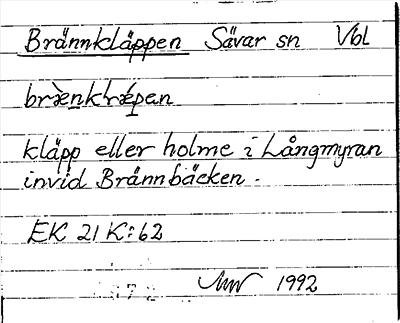 Brännkläppen Sävar sn Vbl
kläpp eller holme i Långmyran
invid Brännbäcken.
EK 21 K:62
1992